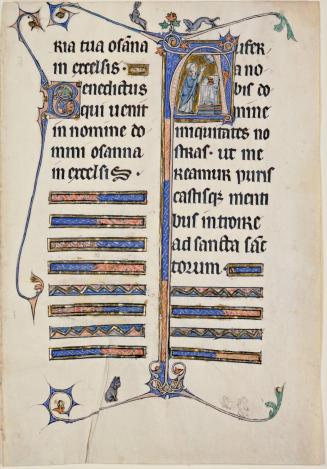 ria tua osāna
in excelsis.
Benedictus
qui uenit
in nomine do
mini osanna
in excelsis
Aufer
a no
bis do
mine
iniquitates no
stras. ut me
reamur puris
castisqꝫ menti
bus introire
ad sancta sanc
torum.